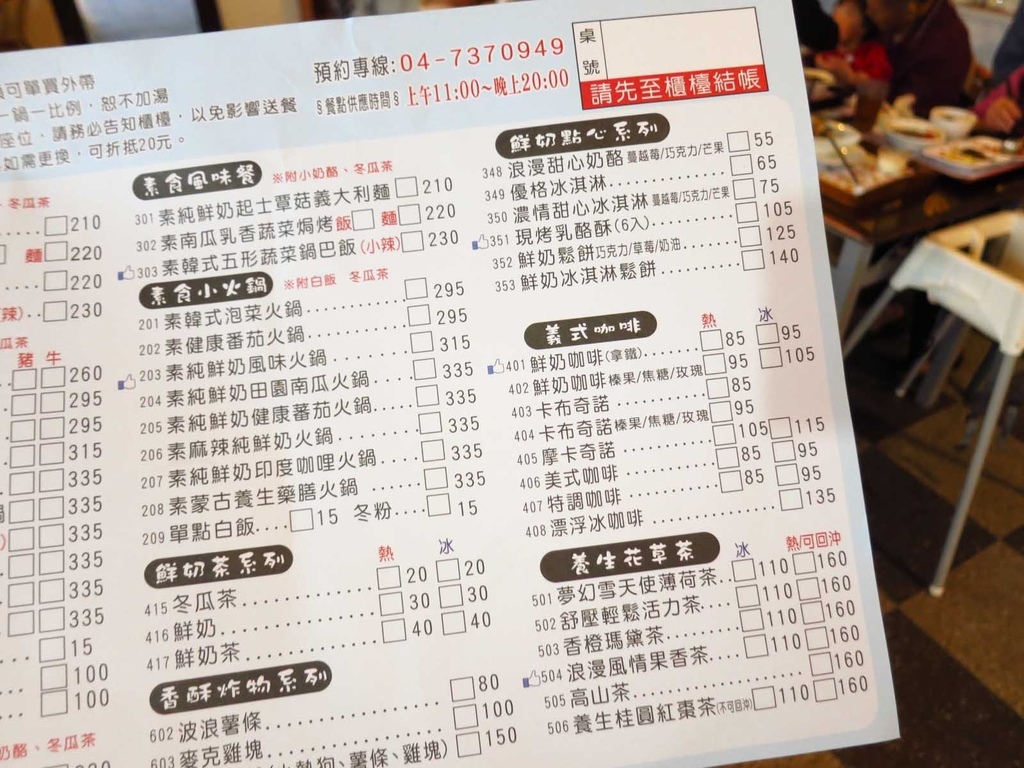 可單買外帶
一鍋一比例，恕不加湯
座位，請務必告知櫃檯，以免影響送餐
如需更換，可折抵20元。
預約專線:04-7370949
§餐點供應時間§ 上午11:00~晚上20:00
桌號
請先至櫃檯結帳
、冬瓜茶
210
麵 220
220
辣)..230
瓜茶
豬 牛
260
295
295
315
335
335
335
335
335
335
15
100
100
奶酪、冬瓜茶
素食風味餐 ※附小奶酪、冬瓜茶
301 素純鮮奶起士蕈菇義大利麵 210
302 素南瓜乳香蔬菜焗烤 飯 麵 220
303 素韓式五形蔬菜鍋巴飯(小辣) 230
素食小火鍋 ※附白飯 冬瓜茶
201 素韓式泡菜火鍋 295
202 素健康番茄火鍋 295
203 素純鮮奶風味火鍋 315
204 素純鮮奶田園南瓜火鍋 335
205 素純鮮奶健康番茄火鍋 335
206 素麻辣純鮮奶火鍋 335
207 素純鮮奶印度咖哩火鍋 335
208 素蒙古養生藥膳火鍋 335
209 單點白飯 15 冬粉 15
鮮奶茶系列 熱 冰
415 冬瓜茶 20 20
416 鮮奶 30 30
417 鮮奶茶 40 40
香酥炸物系列
602 波浪薯條 80
603 麥克雞塊 100
熱狗、薯條、雞塊) 150
鮮奶點心系列
348 浪漫甜心奶酪 蔓越莓/巧克力/芒果 55
349 優格冰淇淋 65
350 濃情甜心冰淇淋 蔓越莓/巧克力/芒果 75
351 現烤乳酪酥(6入) 105
352 鮮奶鬆餅 巧克力/草莓/奶油 125
353 鮮奶冰淇淋鬆餅 140
義式咖啡 熱 冰
401 鮮奶咖啡(拿鐵) 85 95
402 鮮奶咖啡 榛果/焦糖/玫瑰 95 105
403 卡布奇諾 85
404 卡布奇諾 榛果/焦糖/玫瑰 95
405 摩卡奇諾 105 115
406 美式咖啡 85 95
407 特調咖啡 85 95
408 漂浮冰咖啡 135
養生花草茶 冰 熱可回沖
501 夢幻雪天使薄荷茶 110 160
502 舒壓輕鬆活力茶 110 160
503 香橙瑪黛茶 110 160
504 浪漫風情果香茶 110 160
505 高山茶 160
506 養生桂圓紅棗茶(不可回沖) 110 160